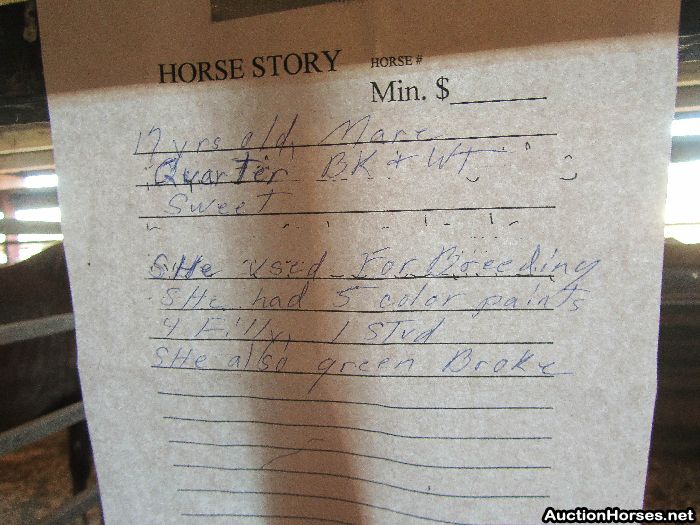 HORSE STORY
HORSE #
Min. $
17 yrs old, Mare
Quarter BK & WT
Sweet
SHe used For Breeding
SHe had 5 color paints
4 Filly, 1 STud
SHe also green Broke
AuctionHorses.net